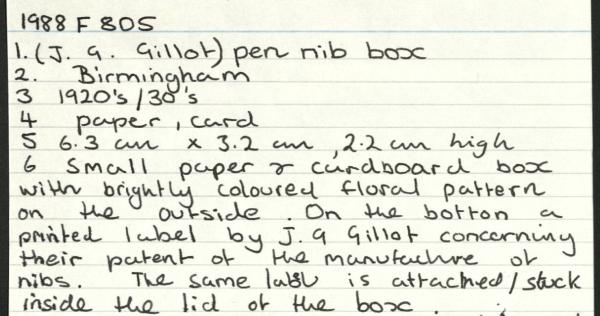 1988 F 805
1. (J. G. Gillot) pen nib box
2. Birmingham
3 1920's/30's
4 paper, card
5 6.3 cm x 3.2 cm, 2.2 cm high
6 Small paper & cardboard box
with brightly coloured floral pattern
on the outside. On the botton a
printed label by J. G Gillot concerning
their patent of the manufacture of
nibs. The same label is attached/stuck
inside the lid of the box.